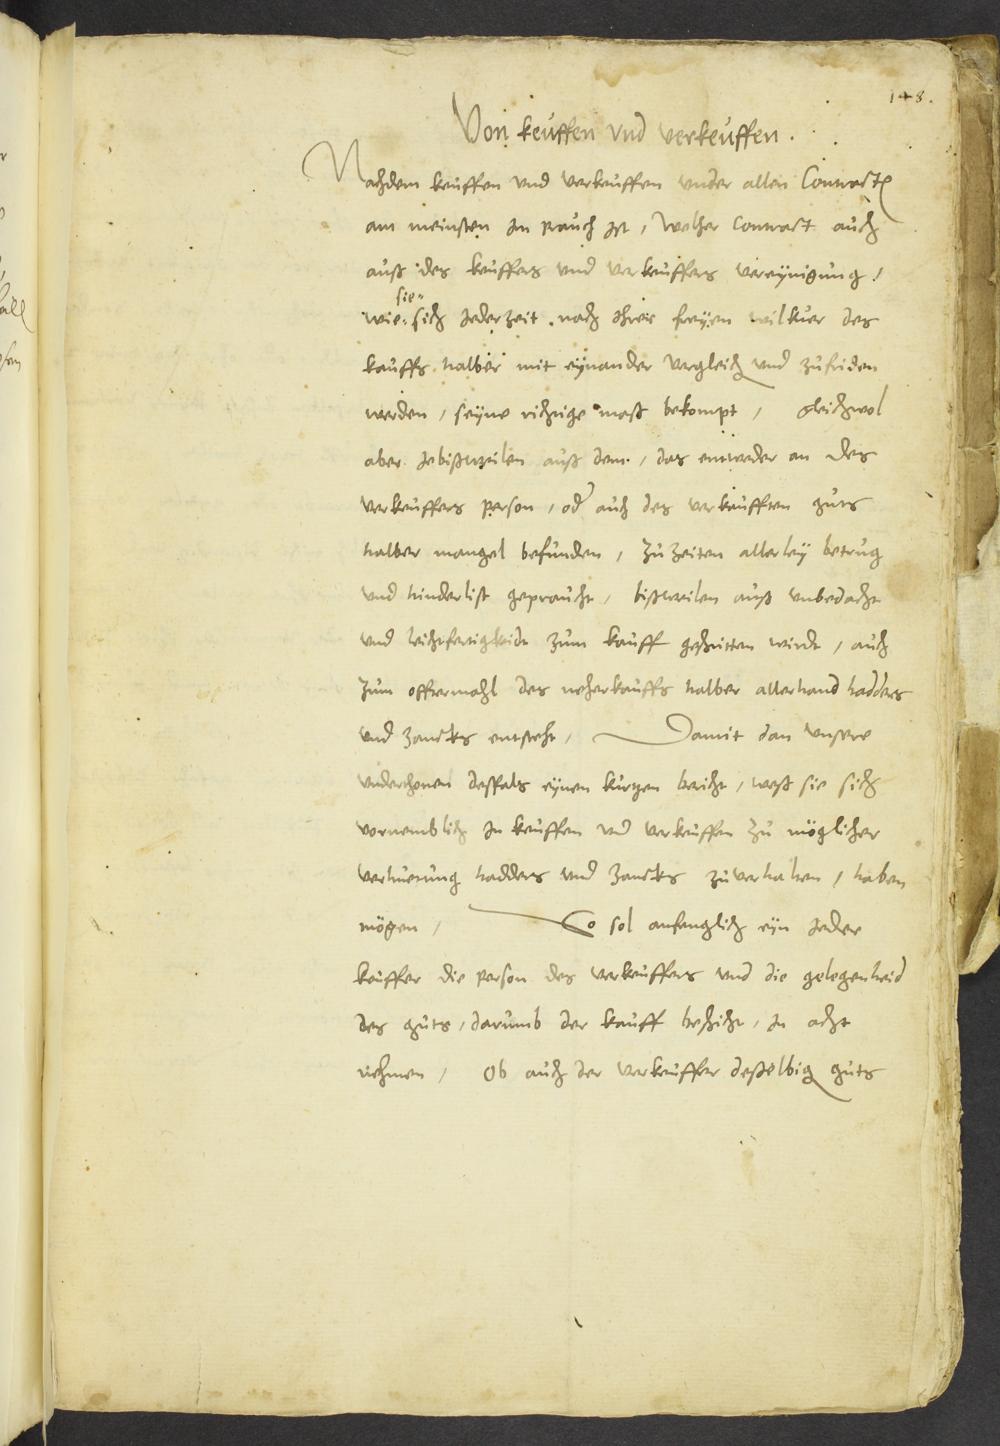 148.
Von keuffen vnd verkeuffen.
Nachdem keuffen vnd verkeuffen vnder allen Contract
am meinsten Im prauch ist, Welher Contract auch
auß des keuffers vnd verkeuffers vereÿnigung,
sie
wie sich Jederzeit nach Ihrer freÿen wilkuer des
kauffs halber mit eÿnander vergleich vnd zufriden
werden, seÿne richtige maß bekompt, Gleichwol
aber Jebißweilen auß dem, das entweder an des
verkeuffers person, od auch des verkaufften guts
halber mangel befunden, Zu Zeiten allerleÿ betrug
vnd hinderlist gepraucht, bißweilen auß vnbedacht
vnd leichtfertigkeidt zum kauff geschritten wirdt, auch
zum offtermahl des neherkauffs halber allerhand hadders
vnd zancks entsteht, Damit dan vnsere
vnderthonen deßfals eÿnen kurtzen bericht, weß sie sich
vornemblich In keuffen vnd verkeuffen zu möglicher
verhuetung hadders vnd zancks zuverhalten, haben
mögen, So sol anfenglich eÿn Jeder
keuffer die person des verkeuffers vnd die gelegenheid
des guts, darumb der kauff beschicht, In acht
nehmen, Ob auch der verkeuffer desselbig guts